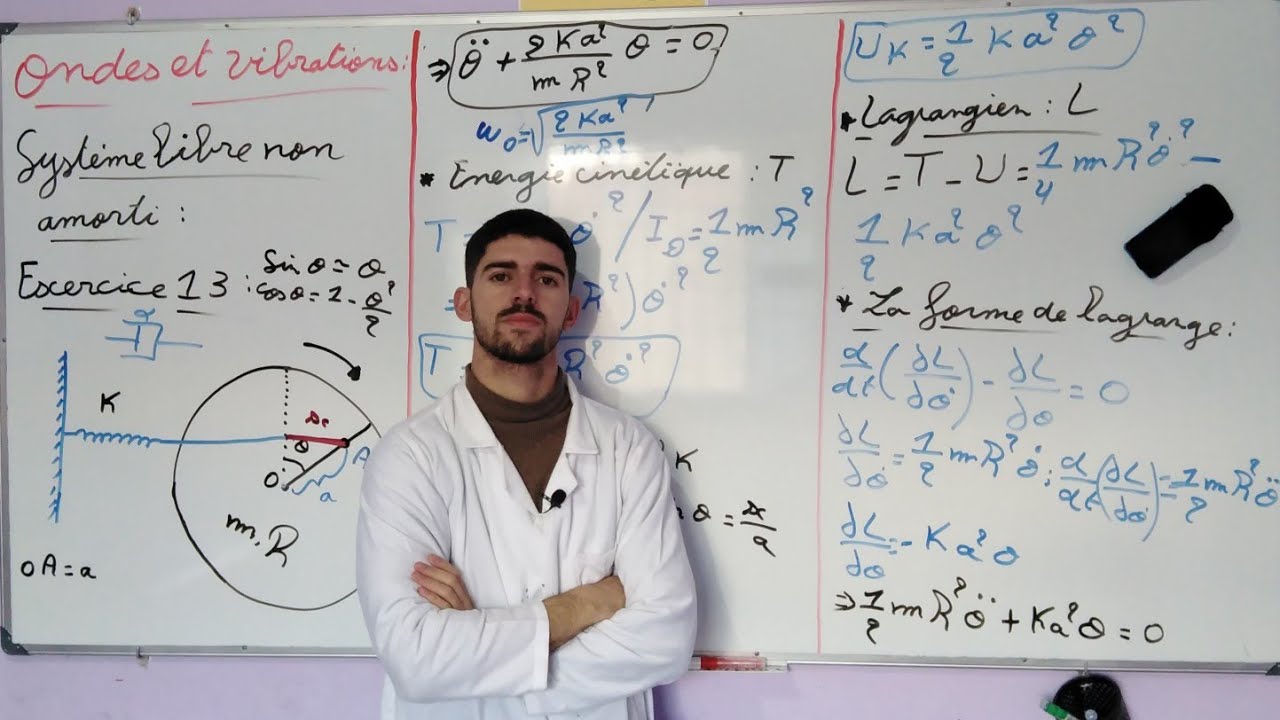 Ondes et vibrations:
Système libre non
amorti :
Excercice 13 : sin θ ≃ θ
cos θ = 1 - θ²/2
K
Δx
θ
A
O
a
m.R
OA = a
⇒ θ̈ + 2Ka²/mR² θ = 0
ω₀ = √(2Ka²/mR²)
* Energie cinétique : T
T = θ̇² / I_O = 1/2 mR²
= R²) θ̇²
T = R² θ̇²
K
θ = x/a
U_K = 1/2 Ka² θ²
* Lagrangien : L
L = T - U = 1/4 mR² θ̇² -
1/2 Ka² θ²
* La forme de lagrange :
d/dt (∂L/∂θ̇) - ∂L/∂θ = 0
∂L/∂θ̇ = 1/2 mR² θ̇ ; d/dt (∂L/∂θ̇) = 1/2 mR² θ̈
∂L/∂θ = - Ka² θ
⇒ 1/2 mR² θ̈ + Ka² θ = 0